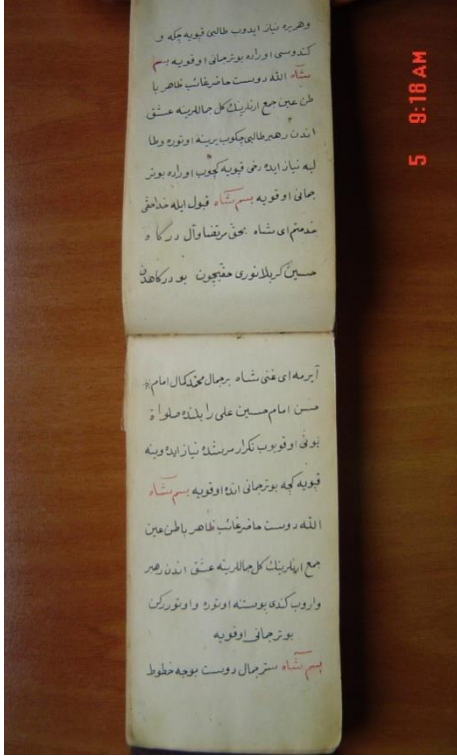 وهریره نیاز ایدوب طالبی قپویه چکه و
کندوسی اوراده بو ترجمانی اوقویه بسم
شاه الله دوست حاضر غائب ظاهر با
طن عین جمع ارنلرینك کل جماللرینه عشق
اندن رهبر طالبی چکوب یرینه اوتوره وطا
لبه نیاز ایده رفی قپویه کچوب اوراده بو تر
جمانی اوقویه بسم شاه قبول ایله خداحقی
خدمتم ای شاه بحق مرتضا وآل درگاه
حسین کربلا نوری حقیچون بو درگاهدن
آیرمه ای غنی شاه بر جمال محمد کمال امام
حسن امام حسین علی را بلنده صلواة
بونی اوقویوب تکرار مرشده نیاز ایده وینه
قپویه کچه بو ترجمانی انده اوقویه بسم شاه
الله دوست حاضر غائب ظاهر باطن عین
جمع ارنلرینك کل جماللرینه عشق اندن رهبر
واروب کندی پوستنه اوتوره و اوتوررکن
بو ترجمانی اوقویه
بسم شاه ستر جمال دوست بوجه خطوط
5 9:18AM